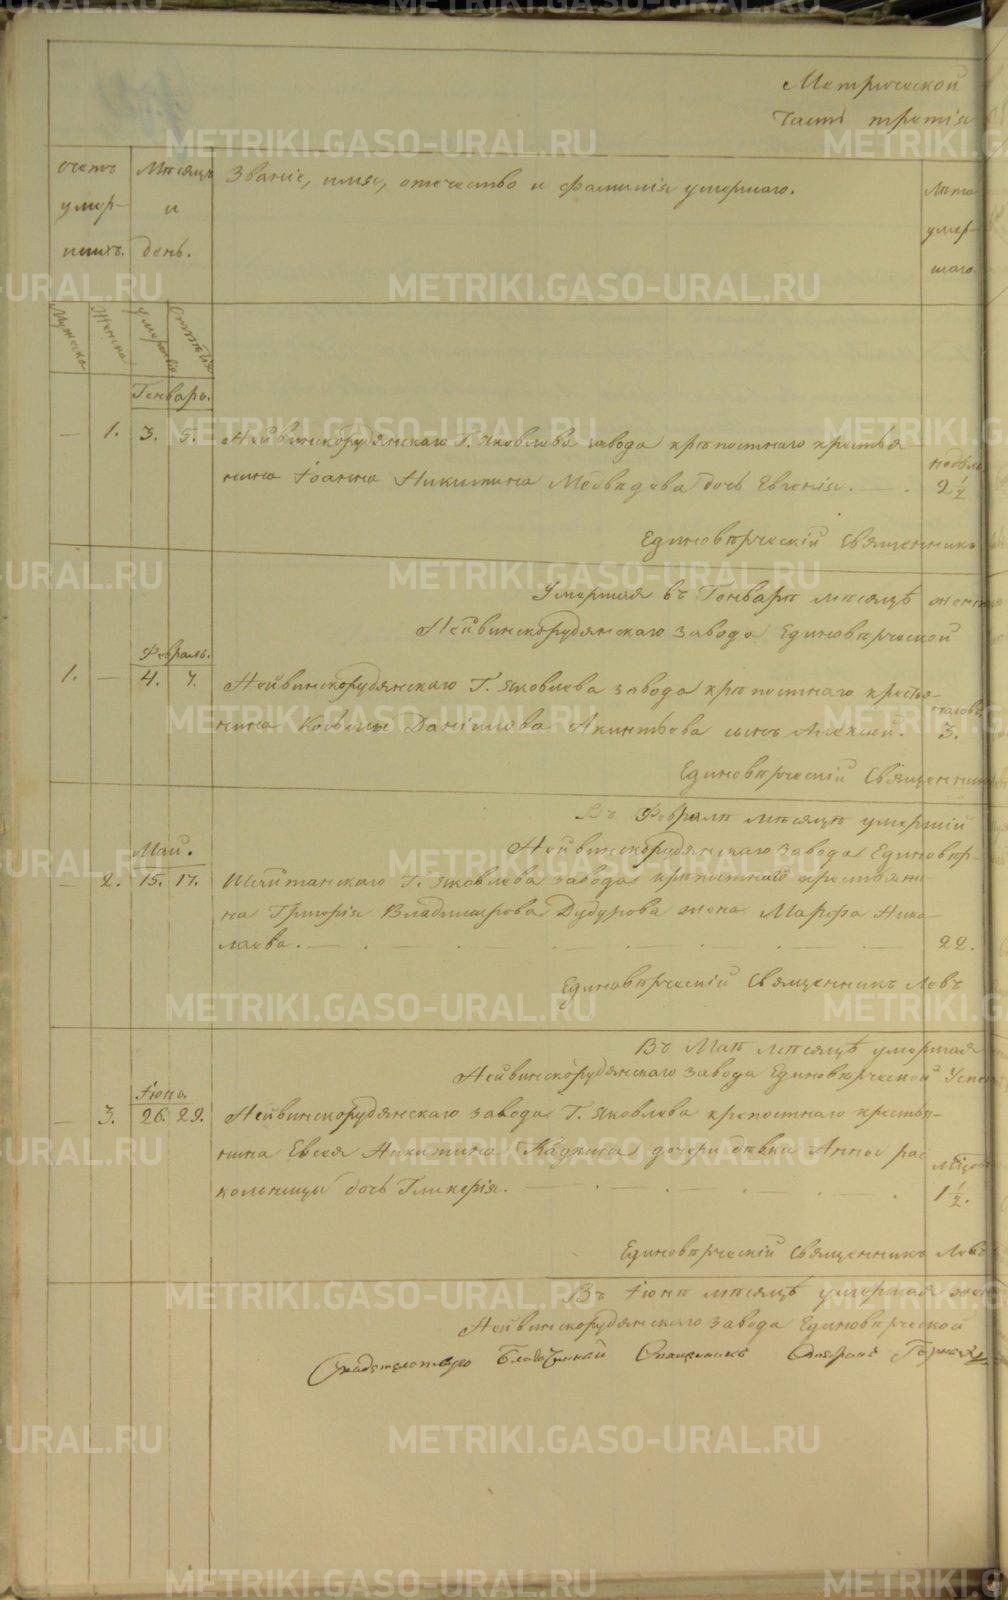 Метрической
Часть третія
Счетъ умер-шихъ.
Мѣсяцъ и день.
Званіе, имя, отчество и фамилія умершаго.
Лѣта умер-шаго
Мужеска
Женска
умертвія
Генварь.
— 1. 3. 5. Нейвинскорудянскаго Г. Яковлева завода крѣпостнаго крестья
недѣль
нина Іоанна Никитина Медвѣдева дочь Евгенія. — . 2 1/2
Единовѣрческій Священникъ
Умершая въ Генварѣ мѣсяцѣ женск
Нейвинскорудянскаго завода Единовѣрческой
Февраль.
1. — 4. 7. Нейвинскорудянскаго Г. Яковлева завода крѣпостнаго крестья-
часовъ
нина Космы Даніилова Акинтѣева сынъ Алексей. 3.
Единовѣрческій Священникъ
Въ Февралѣ мѣсяцѣ умершій
Нейвинскорудянскаго завода Единовѣр-
Май.
— 2. 15. 17. Шайтанскаго Г. Яковлева завода крѣпостнаго крестьяни-
на Григорія Владимірова Дудорова жена Марфа Нико-
лаева. — . 22.
Единовѣрческій Священникъ Левъ
Въ Маѣ мѣсяцѣ умершая
Нейвинскорудянскаго завода Единовѣрческой Успен
Іюнь.
— 3. 26. 29. Нейвинскорудянскаго завода Г. Яковлева крѣпостнаго крестья-
нина Евсея Никитина Кадкина дочери дѣвки Анны рас
кольницы дочь Гликерія. — . 1 1/2.
Единовѣрческій Священникъ Левъ
Въ Іюнѣ мѣсяцѣ умершая женск
Нейвинскорудянскаго завода Единовѣрческой
Свидетельствую Благочинный Священникъ
METRIKI.GASO-URAL.RU